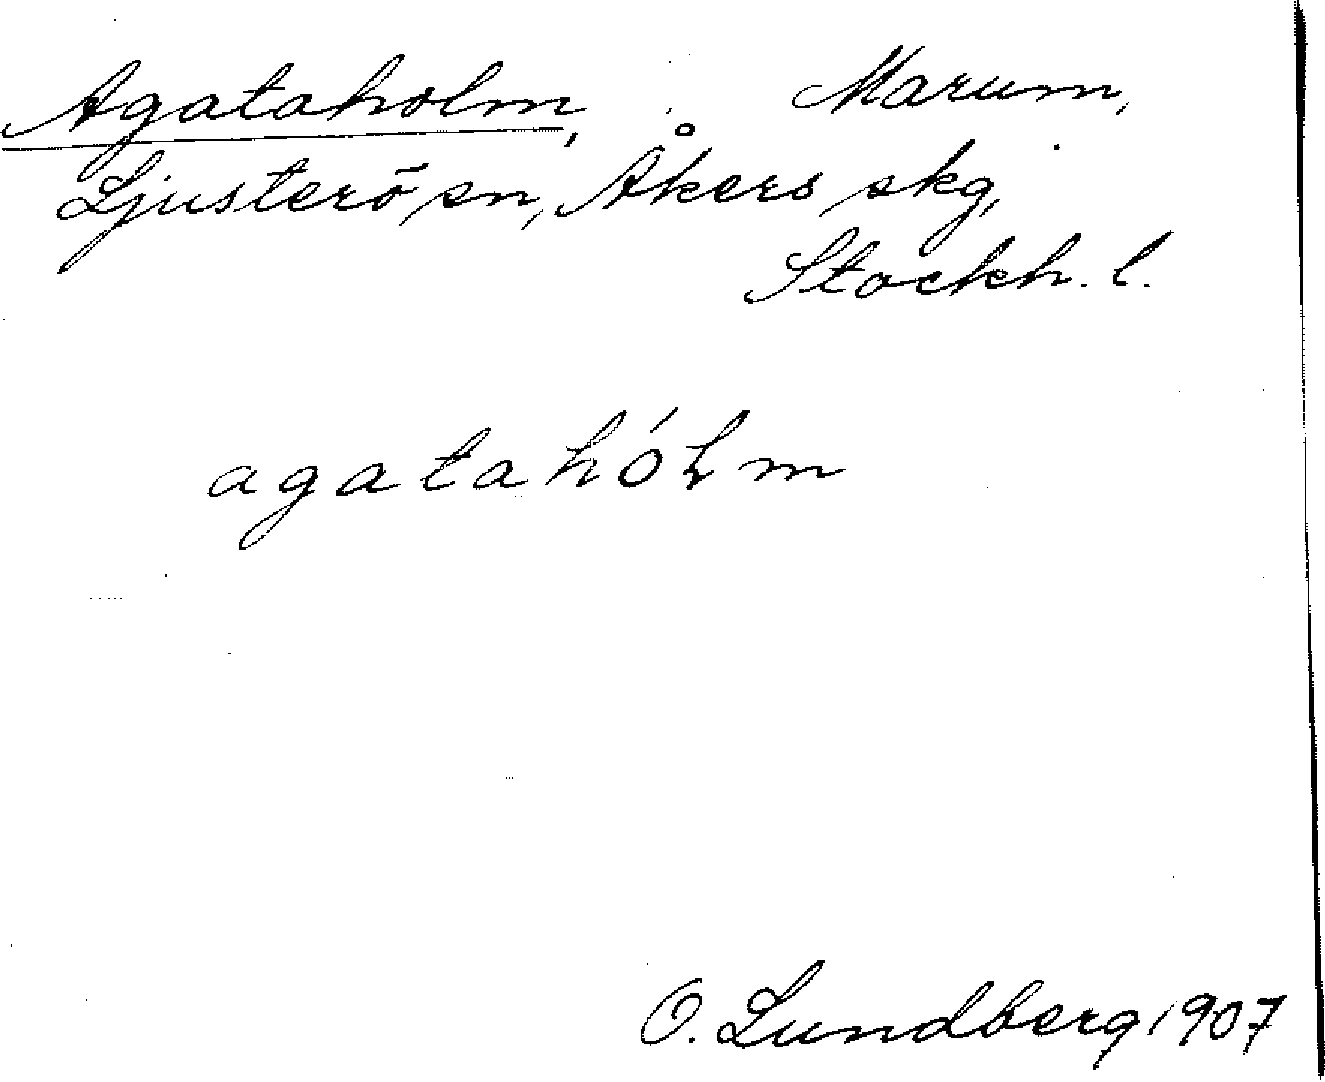 Agataholm, Marum,
Ljusterö sn, Åkers skg,
Stockh. l.
agatahóⱡm
O. Lundberg 1907